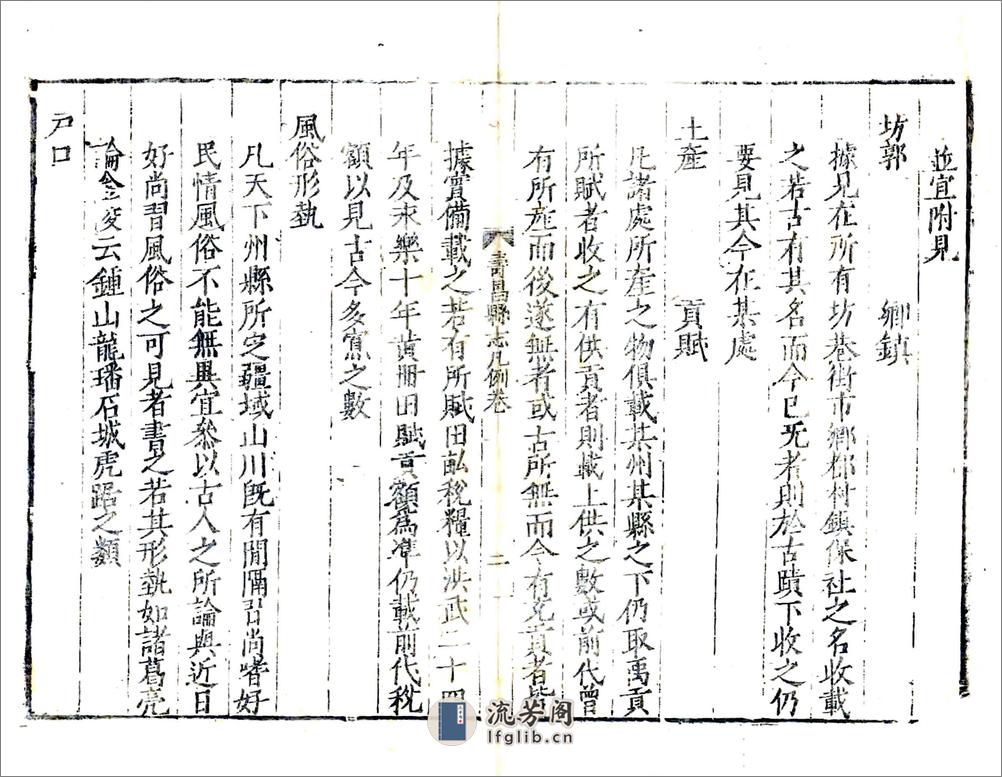 並宜附見
坊郭　鄉鎮
據見在所有坊巷街市鄉都村鎮保社之名收載
之若古有其名而今已旡者則於古蹟下收之仍
要見其今在某處
土産　貢賦
凡諸處所産之物俱載某州某縣之下仍取禹貢
所賦者收之有供貢者則載上供之數或前代曾
有所産而後遂無者或古所無而今有充貢者皆
壽昌縣志凡例卷　二
據實備載之若有所賦田畝稅糧以洪武二十四
年及永樂十年黃冊田賦貢額為準仍載前代稅
額以見古今多寡之數
風俗形埶
凡天下州縣所定疆域山川旣有間隔習尚嗜好
民情風俗不能無異宜叅以古人之所論與近日
好尚習風俗之可見者書之若其形埶如諸葛亮
論金陵云鍾山龍蟠石城虎踞之類
戸口
流芳阁
lfglib.cn